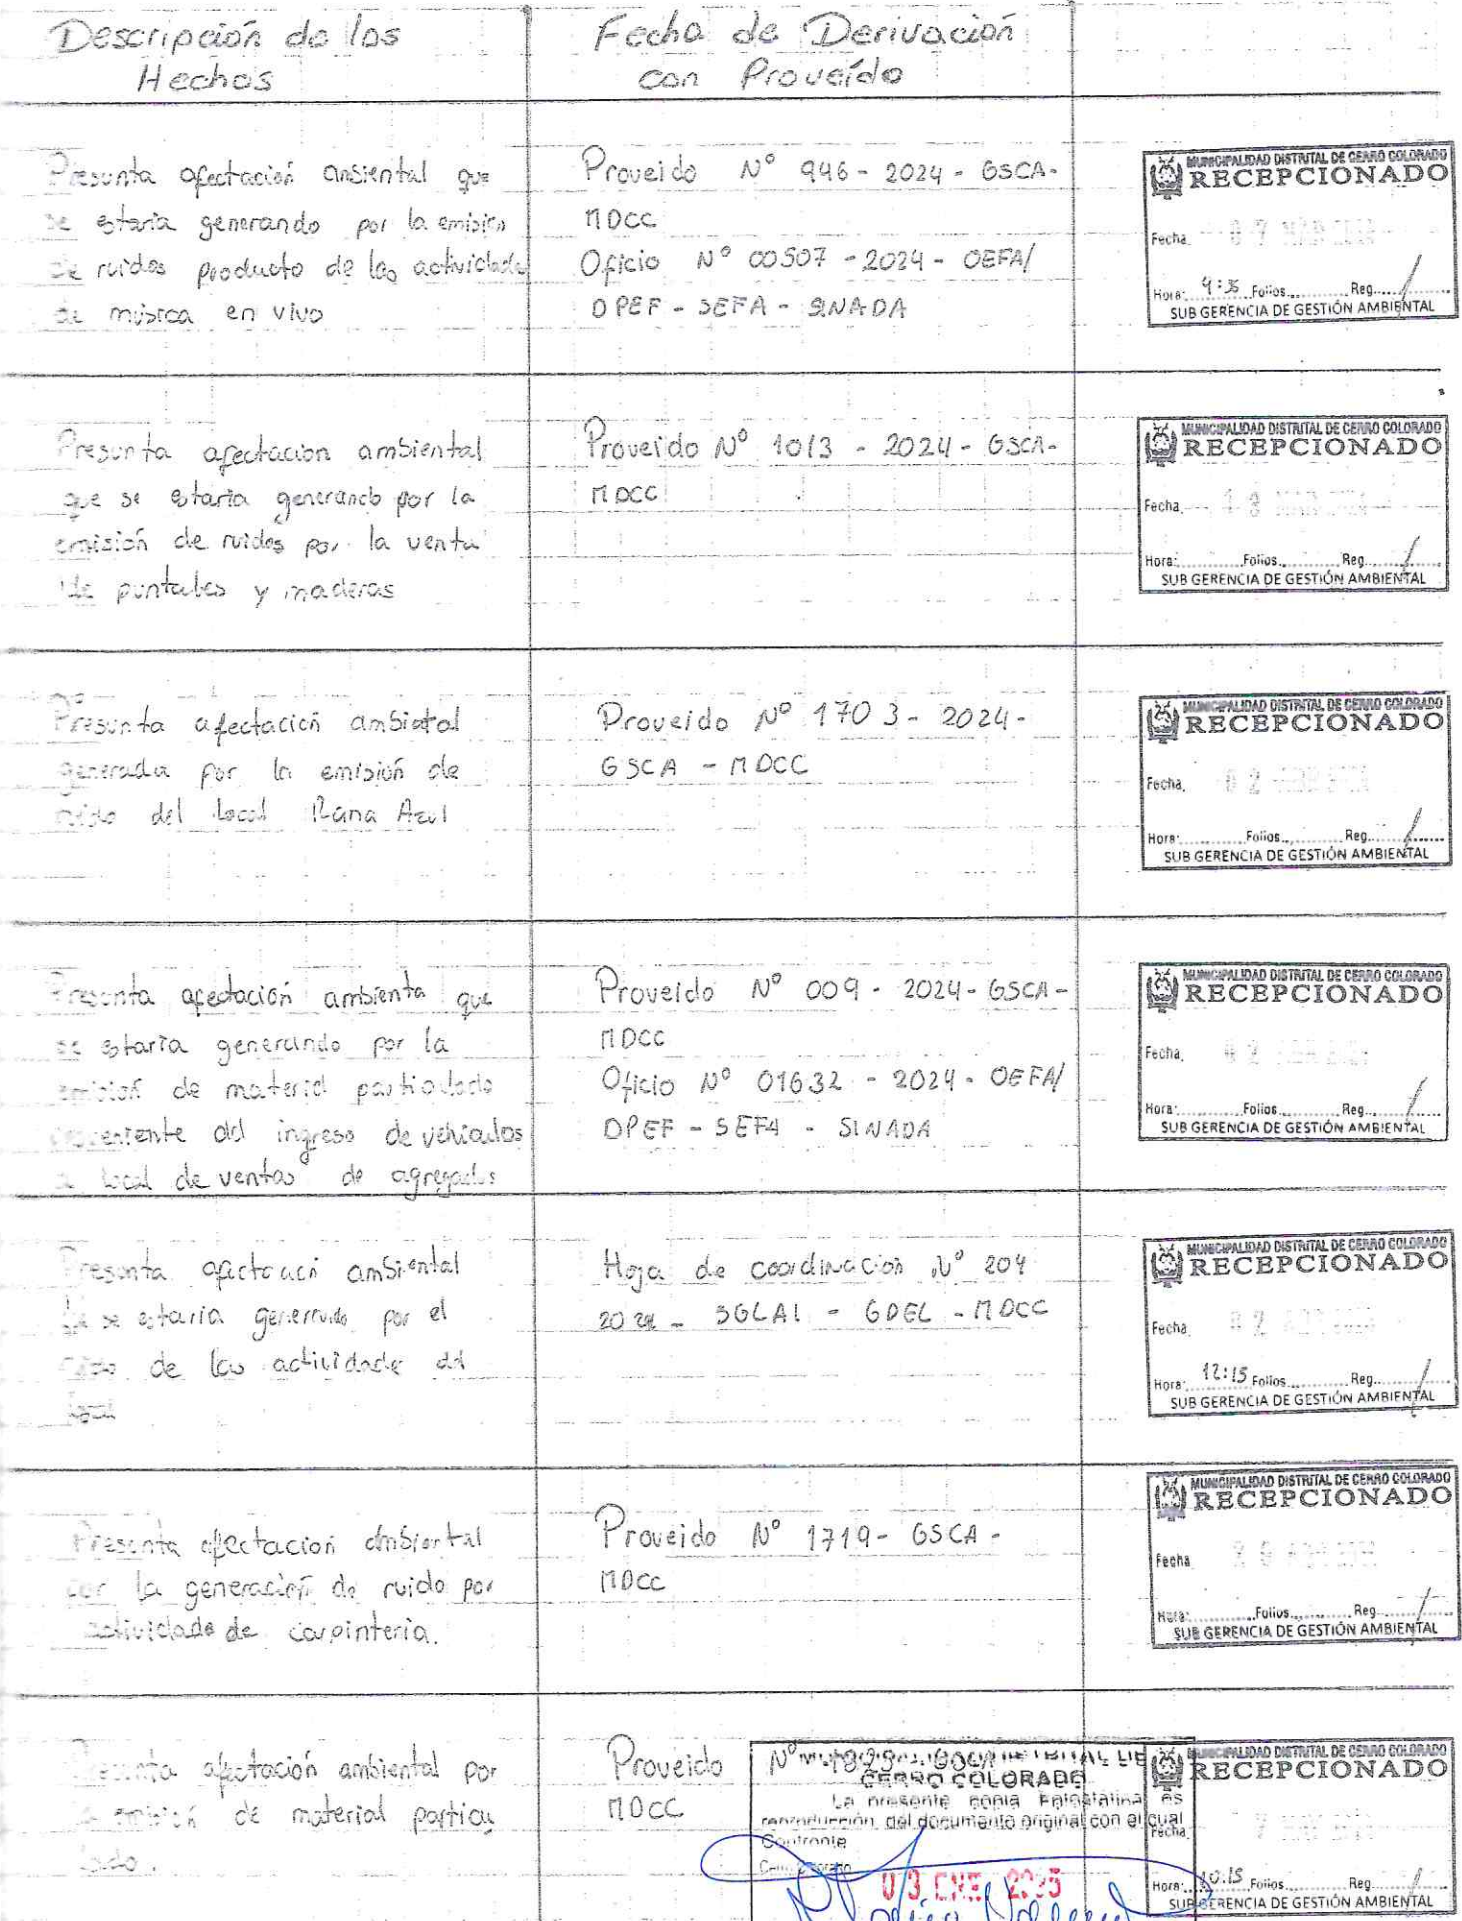 Descripción de los
Hechos
Fecha de Derivación
con Proveído
Presunta afectación ambiental que
se estaría generando por la emisión
de ruidos producto de las actividades
de música en vivo
Proveido Nº 946 - 2024 - GSCA-
MDCC
Oficio Nº 00507 - 2024 - OEFA/
DPEF - SEFA - SINADA
MUNICIPALIDAD DISTRITAL DE CERRO COLORADO
RECEPCIONADO
Fecha
Hora: 9:35 Folios Reg.
SUB GERENCIA DE GESTIÓN AMBIENTAL
Presunta afectacion ambiental
que se estaria generando por la
emisión de ruidos por la venta
de puntales y maderas
Proveido Nº 1013 - 2024 - GSCA-
MDCC
MUNICIPALIDAD DISTRITAL DE CERRO COLORADO
RECEPCIONADO
Fecha
Hora: Folios Reg.
SUB GERENCIA DE GESTIÓN AMBIENTAL
Presunta afectación ambietal
generada por la emisión de
ruido del local Rana Azul
Proveido Nº 1703 - 2024 -
GSCA - MDCC
MUNICIPALIDAD DISTRITAL DE CERRO COLORADO
RECEPCIONADO
Fecha
Hora: Folios Reg.
SUB GERENCIA DE GESTIÓN AMBIENTAL
Presunta afectación ambienta que
se estaria generando por la
emisión de material particulado
del ingreso de vehiculos
local de ventas de agregados
Proveido Nº 009 - 2024 - GSCA -
MDCC
Oficio Nº 01632 - 2024 - OEFA/
DPEF - SEFA - SINADA
MUNICIPALIDAD DISTRITAL DE CERRO COLORADO
RECEPCIONADO
Fecha
Hora: Folios Reg.
SUB GERENCIA DE GESTIÓN AMBIENTAL
Presunta ambiental
se estaria por el
ruido de las actividade del
local
Hoja de coordinacion Nº 204
2024 - SGLAI - GDEL - MDCC
MUNICIPALIDAD DISTRITAL DE CERRO COLORADO
RECEPCIONADO
Fecha
Hora: 12:15 Folios Reg.
SUB GERENCIA DE GESTIÓN AMBIENTAL
Presunta afectación ambiental
por la generación de ruido por
actividade de carpinteria.
Proveido Nº 1719 - GSCA -
MDCC
MUNICIPALIDAD DISTRITAL DE CERRO COLORADO
RECEPCIONADO
Fecha
Hora: Folios Reg.
SUB GERENCIA DE GESTIÓN AMBIENTAL
Presunta afectación ambiental por
emisión de material particu
lado.
Proveido Nº
MDCC
CERRO COLORADO
La presente copia Fotostática es
reproducción del documento original con el cual
Confronte
03 ENE 2025
MUNICIPALIDAD DISTRITAL DE CERRO COLORADO
RECEPCIONADO
Fecha
Hora: 10:15 Folios Reg.
SUB GERENCIA DE GESTIÓN AMBIENTAL